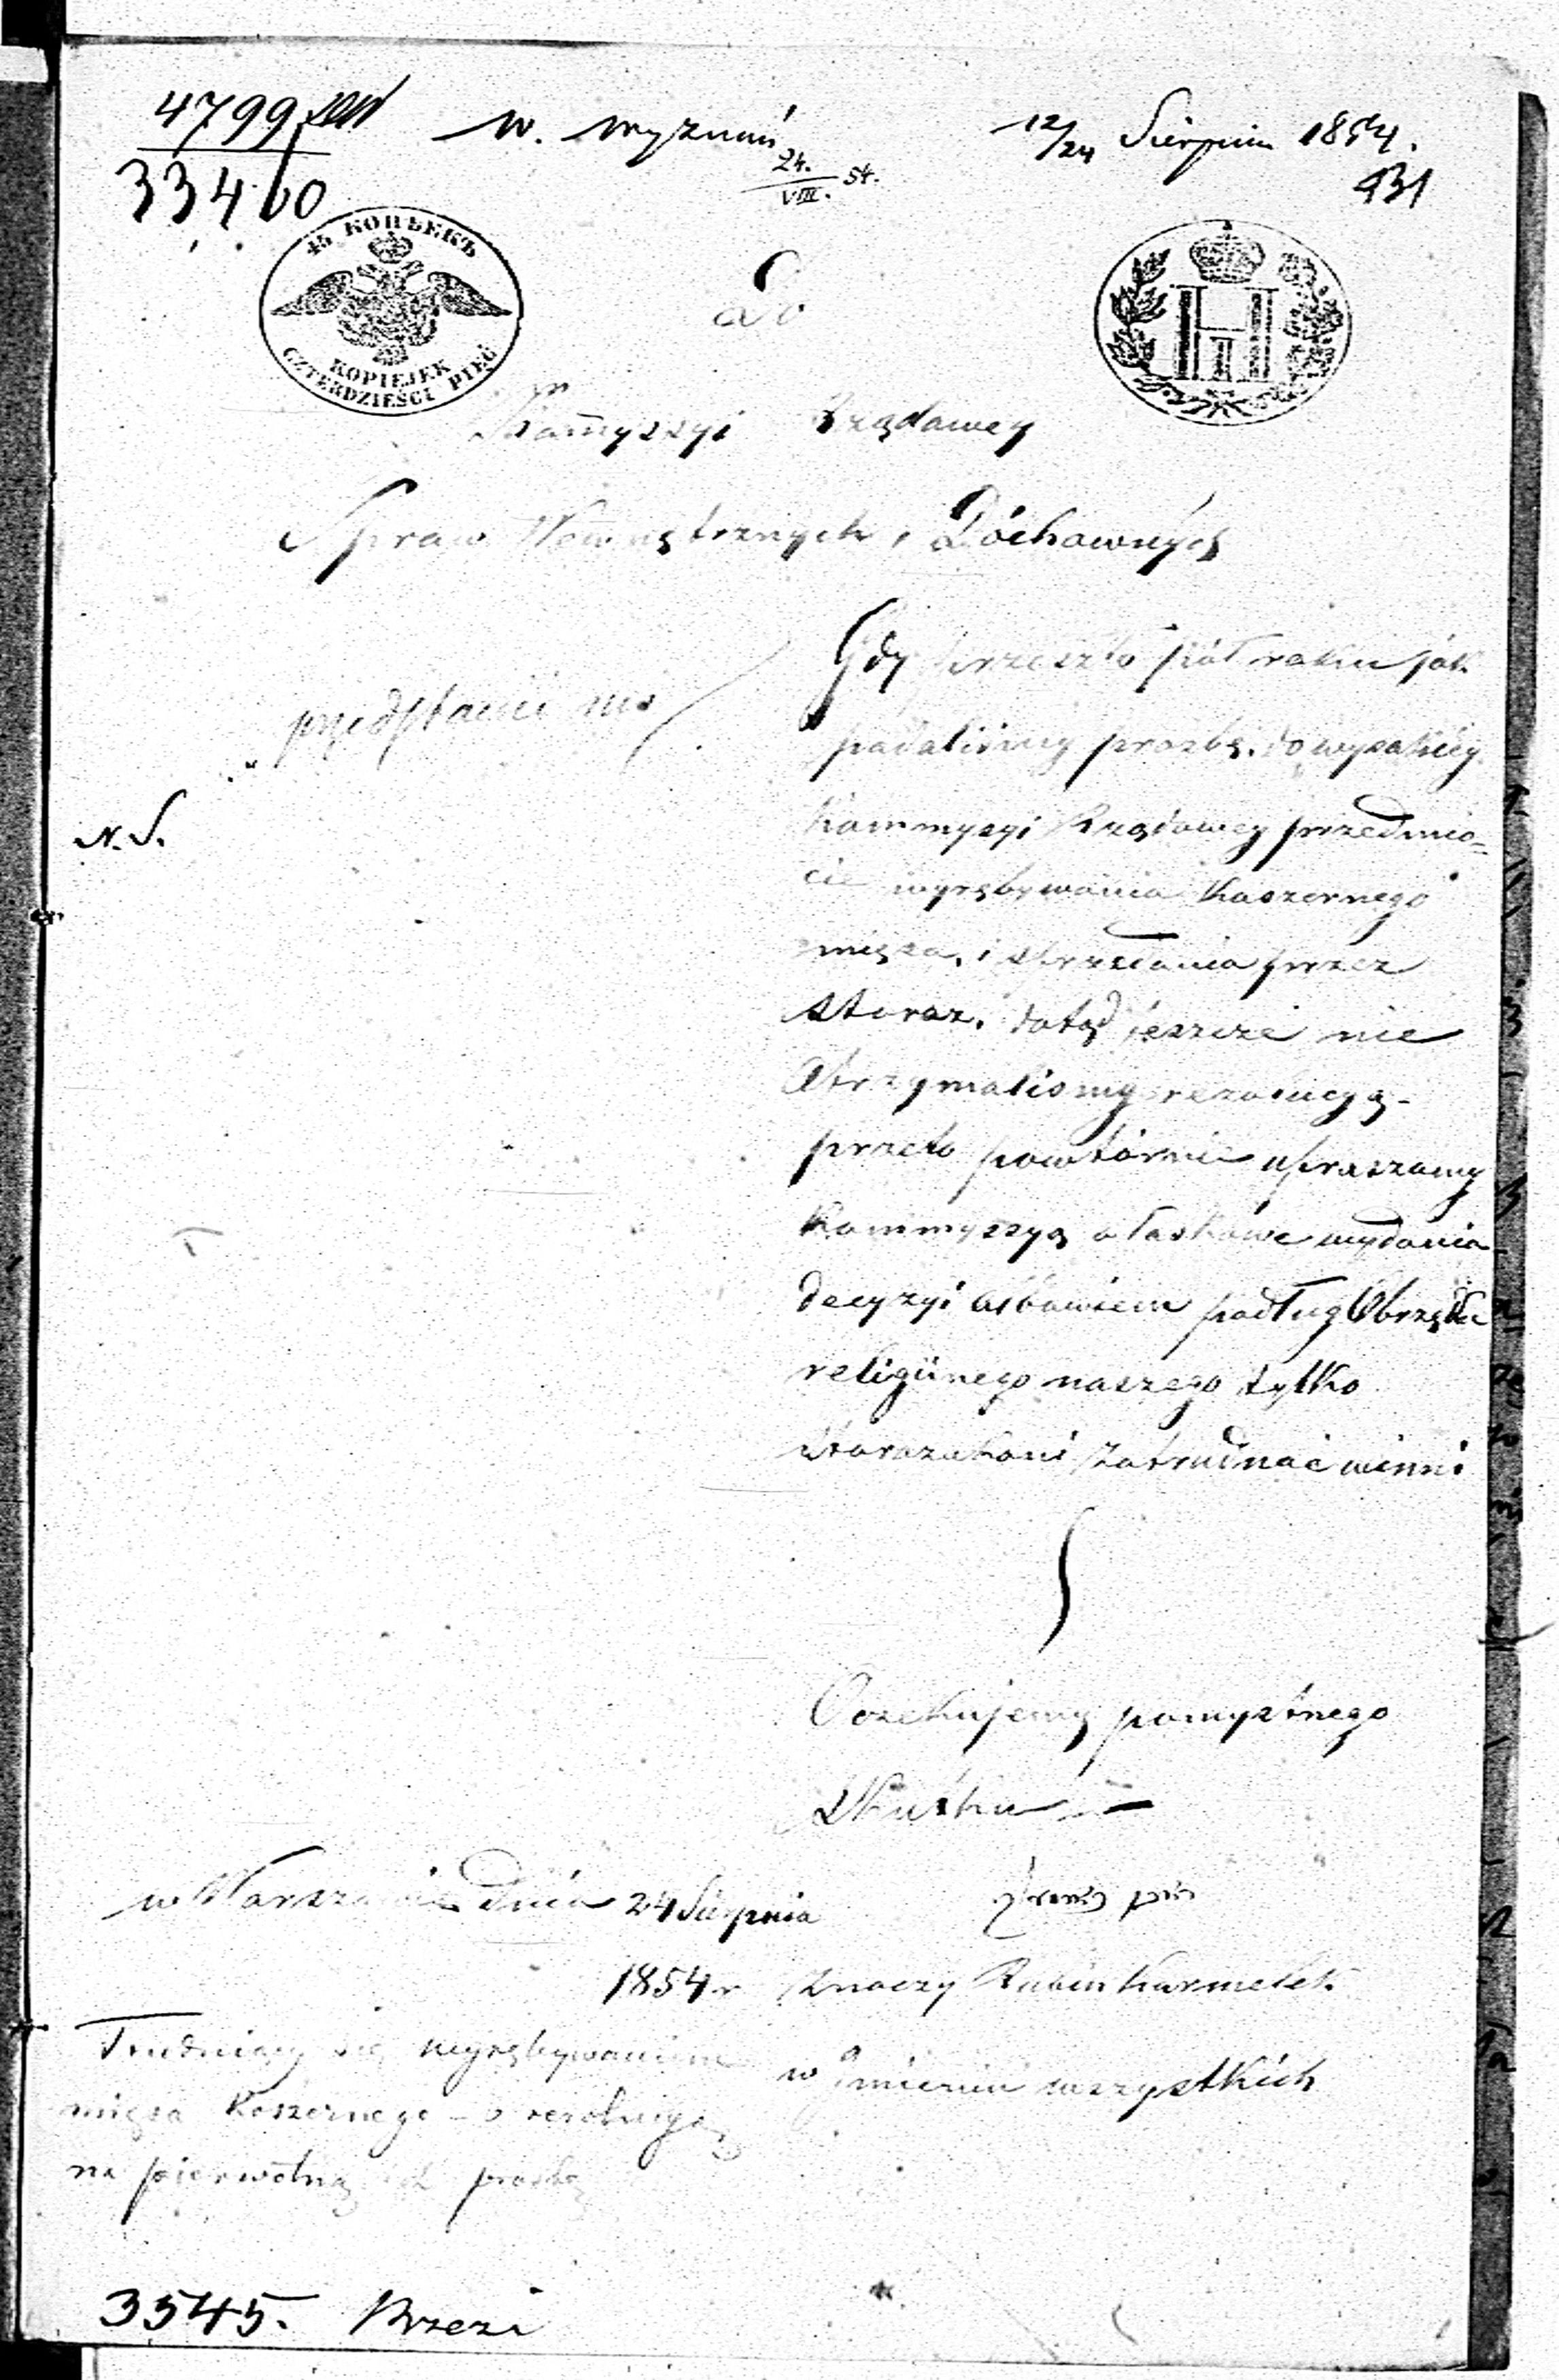 4799
33460
W. wyznań
24.
VIII. St.
12/24 Sierpnia 1854.
431
45 КОПѢЕКЪ
KOPIEJEK
CZTERDZIEŚCI PIĘĆ
Do
Kom̅yssyi Rządowey
Spraw Wewnętrznych i Dóchownych
przedstawić
N. S.
Gdy przeszło pół roku jak
podaliśmy prozbę do wysokiey
Kommyssyi Rządowey przedmio=
cie wyrębywania Koszernego
mięsa, i strzedania przez
stroz. dotąd jeszcze nie
otrzymalismy rezolucyą -
przeto powtórnie upraszamy
Kommyssyą o łaskawe wydania
decyzyi albowiem podług Obrządku
religiinego naszego tylko
starozakoni zatrudnać winni
Oczekujemy pomyslnego
skutku —
w Warszawie dnia 24 Sierpnia
1854 r
Znaczy Rubin Karmelek
w imieniu wszystkich
Trudniący się wyrębywaniem
mięsa Koszernego - o rezolucyą
na pierwotną ich prosbę
3545. Brzezi